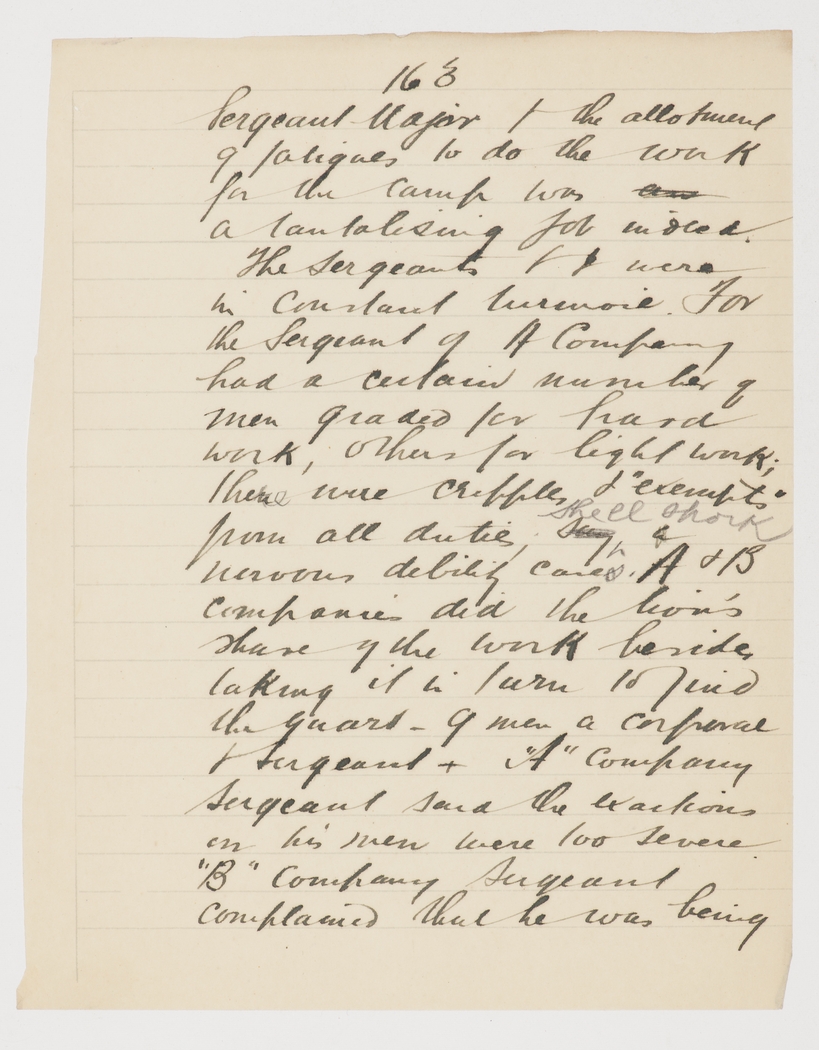 163
Sergeant-Major & the allotment
of fatigues to do the work
for the camp was an
a tantalising job indeed.
The Sergeants & I were
in constant turmoil. For
the Sergeant of A Company
had a certain number of
men graded for hard
work, others for light work;
there were cripples & "exempts"
shell shock
from all duties, say, &
nervous debility cases. A & B
companies did the lion's
share of the work besides
taking it in turn to find
the guard - 9 men a corporal
& Sergeant & "A" Company
Sergeant said the exactions
on his men were too severe
"B" Company Sergeant
complained that he was being